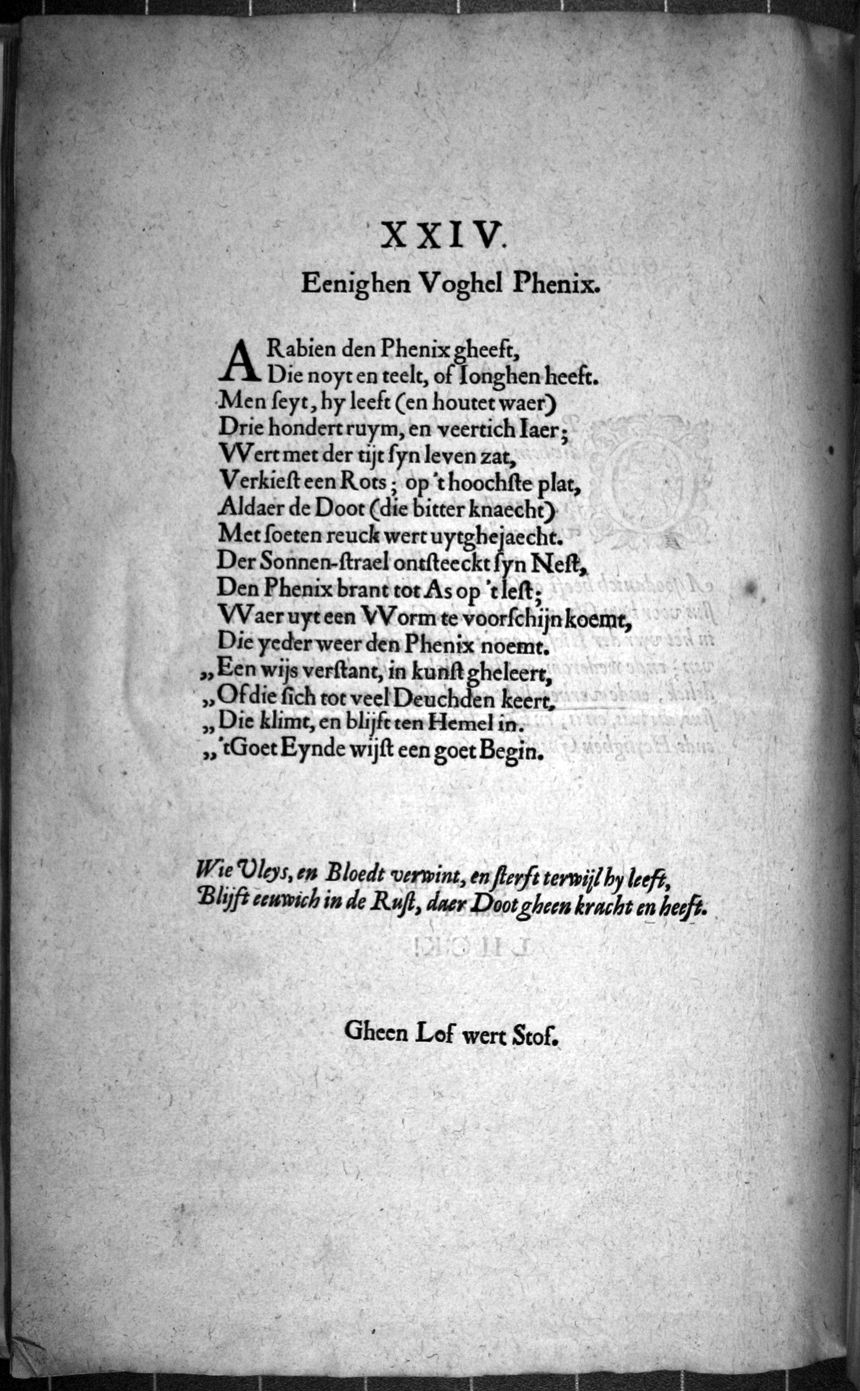 XXIV.
Eenighen Voghel Phenix.
ARabien den Phenix gheeft,
Die noyt en teelt, of Ionghen heeft.
Men ſeyt, hy leeft (en houtet waer)
Drie hondert ruym, en veertich Iaer;
VVert met der tijt ſyn leven zat,
Verkieſt een Rots; op 't hoochſte plat,
Aldaer de Doot (die bitter knaecht)
Met ſoeten reuck wert uytghejaecht.
Der Sonnen-ſtrael ontſteeckt ſyn Neſt,
Den Phenix brant tot As op 't leſt;
VVaer uyt een VVorm te voorſchijn koemt,
Die yeder weer den Phenix noemt.
„Een wijs verſtant, in kunſt gheleert,
„Of die ſich tot veel Deuchden keert,
„Die klimt, en blijft ten Hemel in.
„'tGoet Eynde wijſt een goet Begin.
Wie Vleys, en Bloedt verwint, en ſterft terwijl hy leeft,
Blijft eeuwich in de Ruſt, daer Doot gheen kracht en heeft.
Gheen Lof wert Stof.